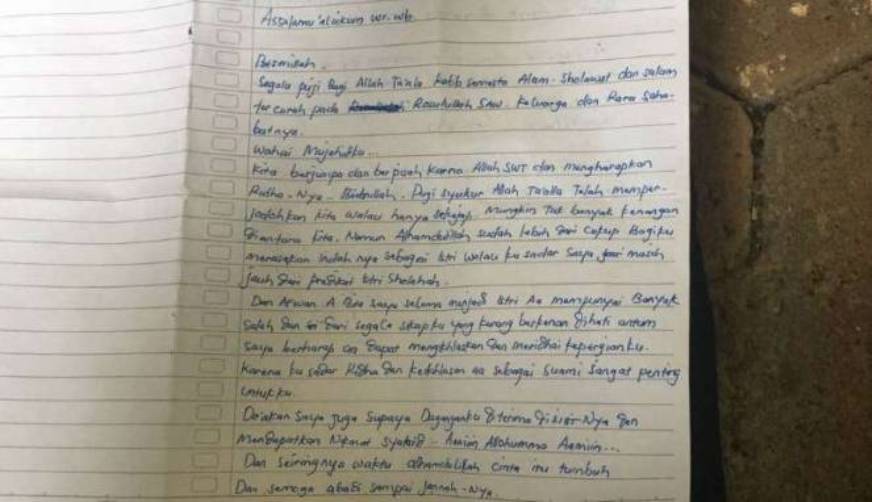 Assalamu'alaikum wr.wb
Bismillah.
Segala puji Bagi Allah Ta'ala Robb semesta Alam. Sholawat dan salam
ter curah pada Rasulullah SAW. Keluarga dan Para Saha-
batnya.
Wahai Mujahidku...
Kita berjumpa dan berpisah karna Allah SWT dan mengharapkan
Ridho-Nya. Puji syukur Allah Ta'alla Telah memper-
jodohkan kita walau hanya sekejap. Mungkin Tak banyak kenangan
diantara kita. Namun Alhamdulillah sudah lebih dari Cukup Bagiku
merasakan indah nya sebagai istri walau ku sadar saya masih
jauh dari predikat istri Sholehah.
Dan saya selama menjadi istri Aa mempunyai Banyak
salah dan dari segala sikapku yang kurang berkenan dihati antum
saya berharap aa dapat mengikhlaskan dan meridhai kepergianku.
Karena ku sadar Ridha dan keikhlasan aa sebagai suami sangat penting
untukku.
Doakan saya juga supaya diterima disisi-Nya dan
Mendapatkan Nikmat syahid. Aamiin Allohumma Aamiin...
Dan seiringnya waktu alhamdulillah cinta itu tumbuh
Dan semoga abadi sampai Jannah-Nya